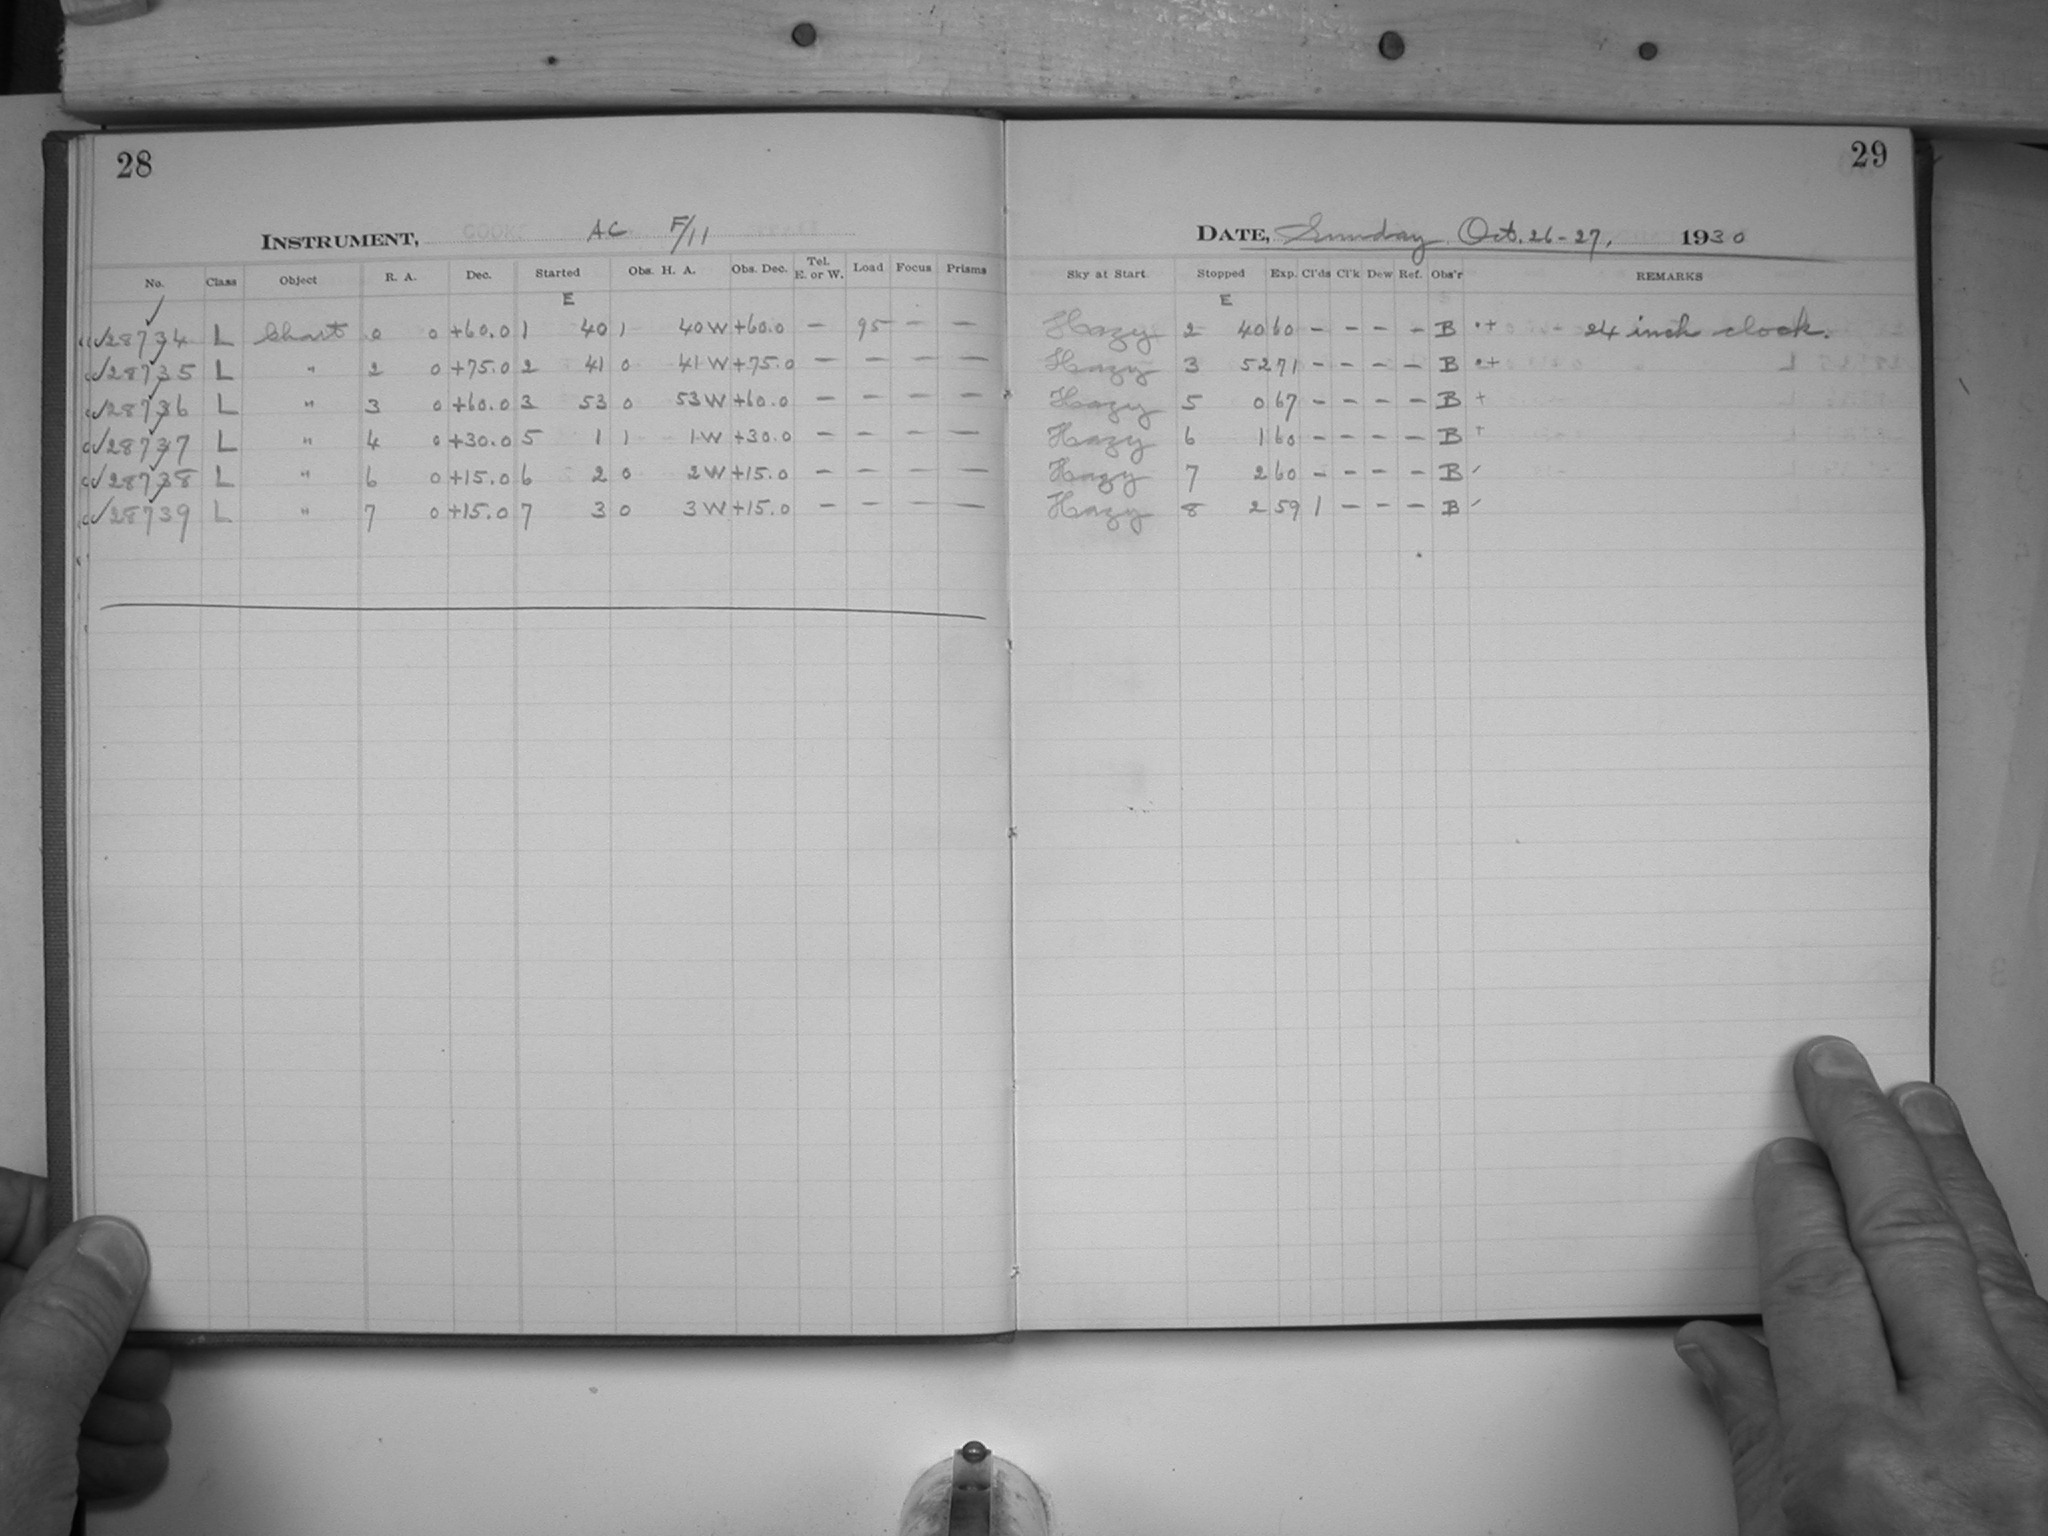 28
INSTRUMENT, AC F/11
No. Class Object R. A. Dec. Started Obs. H. A. Obs. Dec. Tel. E. or W. Load Focus Prisms
E
✓28734 L Chart 0 0 +60.0 1 40 1 40 W +60.0 — 95 — —
✓28735 L " 2 0 +75.0 2 41 0 41 W +75.0 — — — —
✓28736 L " 3 0 +60.0 3 53 0 53 W +60.0 — — — —
✓28737 L " 4 0 +30.0 5 1 1 1 W +30.0 — — — —
✓28738 L " 6 0 +15.0 6 2 0 2 W +15.0 — — — —
✓28739 L " 7 0 +15.0 7 3 0 3 W +15.0 — — — —
29
DATE, Sunday Oct. 26-27, 1930
Sky at Start Stopped Exp. Cl'ds Cl'k Dew Ref. Obs'r REMARKS
E
Hazy 2 40 60 — — — — B •+ 24 inch clock.
Hazy 3 52 71 — — — — B •+
Hazy 5 0 67 — — — — B +
Hazy 6 1 60 — — — — B +
Hazy 7 2 60 — — — — B ✓
Hazy 8 2 59 1 — — — B ✓